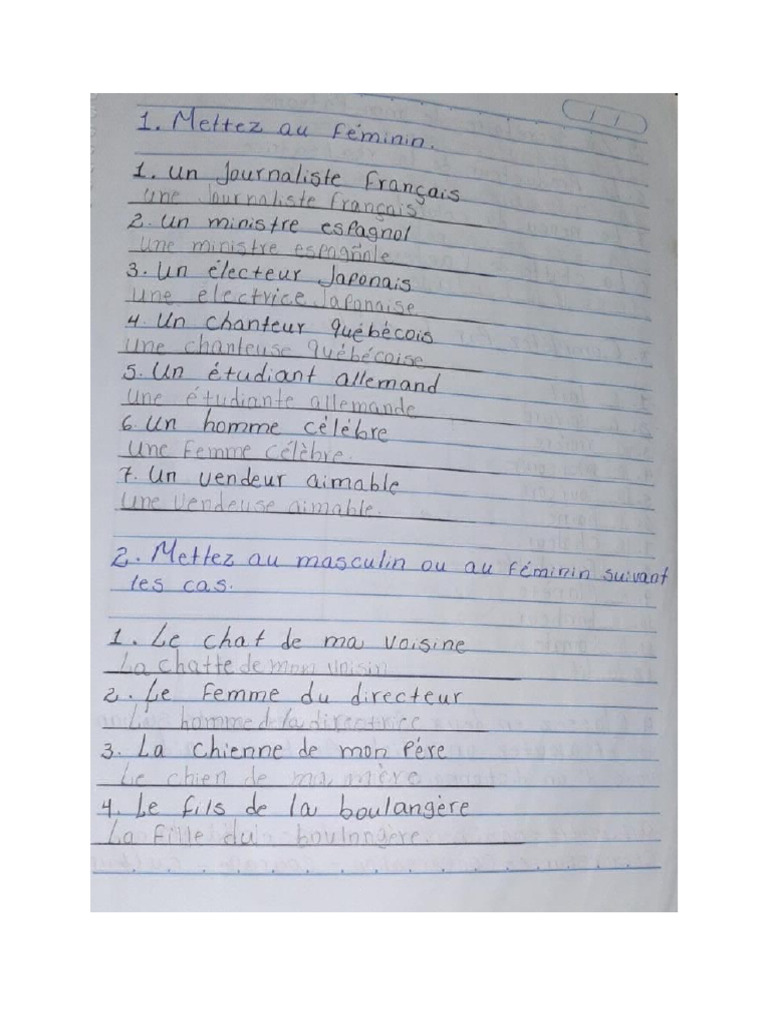 1. Mettez au féminin.
1. Un Journaliste français
Une Journaliste français
2. Un ministre espagnol
Une ministre espagñole
3. Un électeur Japonais
Une électrice Japonaise
4. Un chanteur québécois
Une chanteuse québécoise
5. Un étudiant allemand
Une étudiante allemande
6. Un homme célèbre
Une femme célèbre.
7. Un vendeur aimable
Une vendeuse aimable.
2. Mettez au masculin ou au féminin suivant
les cas.
1. Le chat de ma voisine
La chatte de mon voisin
2. Le femme du directeur
homme d la directrice
3. La chienne de mon Père
Le chien de ma mère
4. Le fils de la boulangère
La fille du boulnngère.